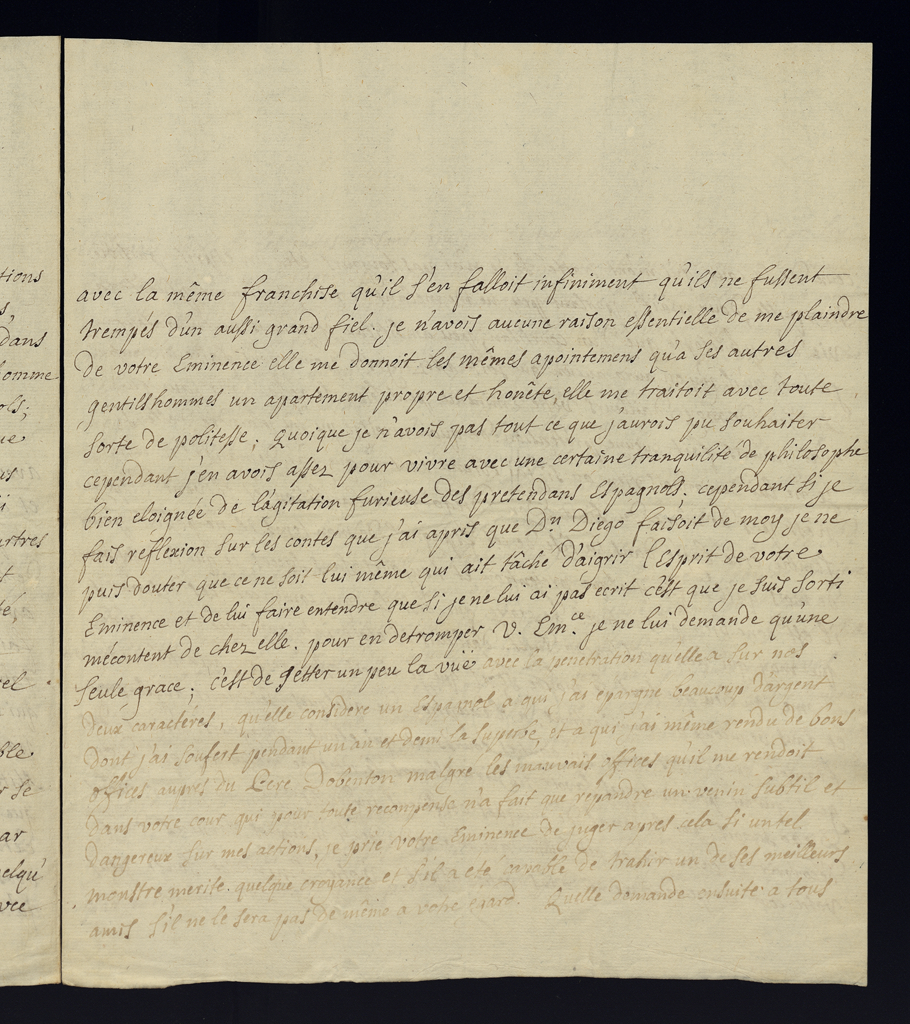 tions
dans
omme
avec la même franchise qu'il s'en falloit infiniment qu'ils ne fussent
trempés d'un aussi grand fiel. je n'avois aucune raison essentielle de me plaindre
de votre Eminence elle me donnoit les mêmes apointemens qu'a ses autres
gentilshommes un apartement propre et honête, elle me traitoit avec toute
sorte de politesse; Quoique je n'avois pas tout ce que j'aurois pu souhaiter
cependant j'en avois assez pour vivre avec une certaine tranquilité de philosophe
bien eloignée de l'agitation furieuse des pretendans Espagnols. cependant si je
fais reflexion sur les contes que j'ai apris que Dn Diego faisoit de moy je ne
puis douter que ce ne soit lui même qui ait tâché d'aigrir l'Esprit de votre
Eminence et de lui faire entendre que si je ne lui ai pas ecrit c'est que je suis sorti
mécontent de chez elle. pour en detromper V. Em.ce je ne lui demande qu'une
seule grace; c'est de jetter un peu la vuë avec la penetration qu'elle a sur nos
deux caractéres, qu'elle considere un Espagnol a qui j'ai epargné beaucoup d'argent
dont j'ai soufert pendant un an et demi la superbe, et a qui j'ai même rendu de bons
offices auprés du Pere Dobenton malgré les mauvais offices qu'il me rendoit
dans votre cour qui pour toute recompense n'a fait que repandre un venin subtil et
dangereux sur mes actions, je prie votre Eminence de juger aprés cela si un tel
monstre merite quelque croyance et s'il a eté capable de trahir un de ses meilleurs
amis s'il ne le sera pas de même a votre egard. Quelle demande ensuite a tous